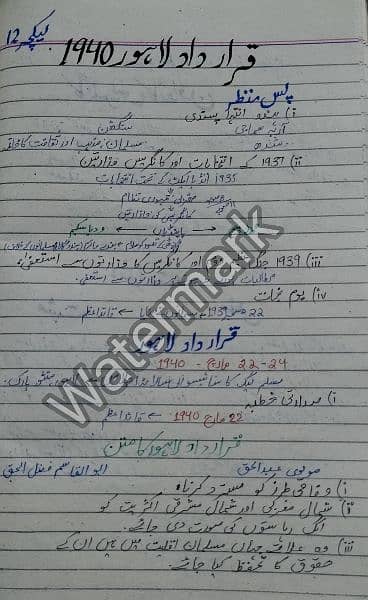 لیکچر 12
قرارداد لاہور 1940
پس منظر
i) ہندو انتہا پسندی
آریہ سماجی سنگھٹن
مسلمان مذہب اور ثقافت کا خاتمہ
ii) 1937 کے انتخابات اور کانگریس وزارتیں
1935 انڈیا ایکٹ کے تحت انتخابات
iii) 1939 جنگ اور کانگریس کا وزارتوں سے استعفیٰ
مطالبات
iv) یوم نجات
22 دسمبر 1939 قائداعظم
قرارداد لاہور
22-24 مارچ - 1940
مسلم لیگ کا لاہور منٹو پارک
i) صدارتی خطبہ
22 مارچ 1940 ← قائداعظم
قرارداد لاہور کا متن
مولوی عبدالحق ابوالقاسم فضل الحق
i) وفاقی طرز کو مسترد کرنا
ii) شمال مغربی اور شمال مشرقی اکثریت کو
الگ ریاستوں کی صورت دی جائے۔
iii) وہ علاقے جہاں مسلمان اقلیت میں ہیں ان کے
حقوق کا تحفظ کیا جائے۔
Watermark